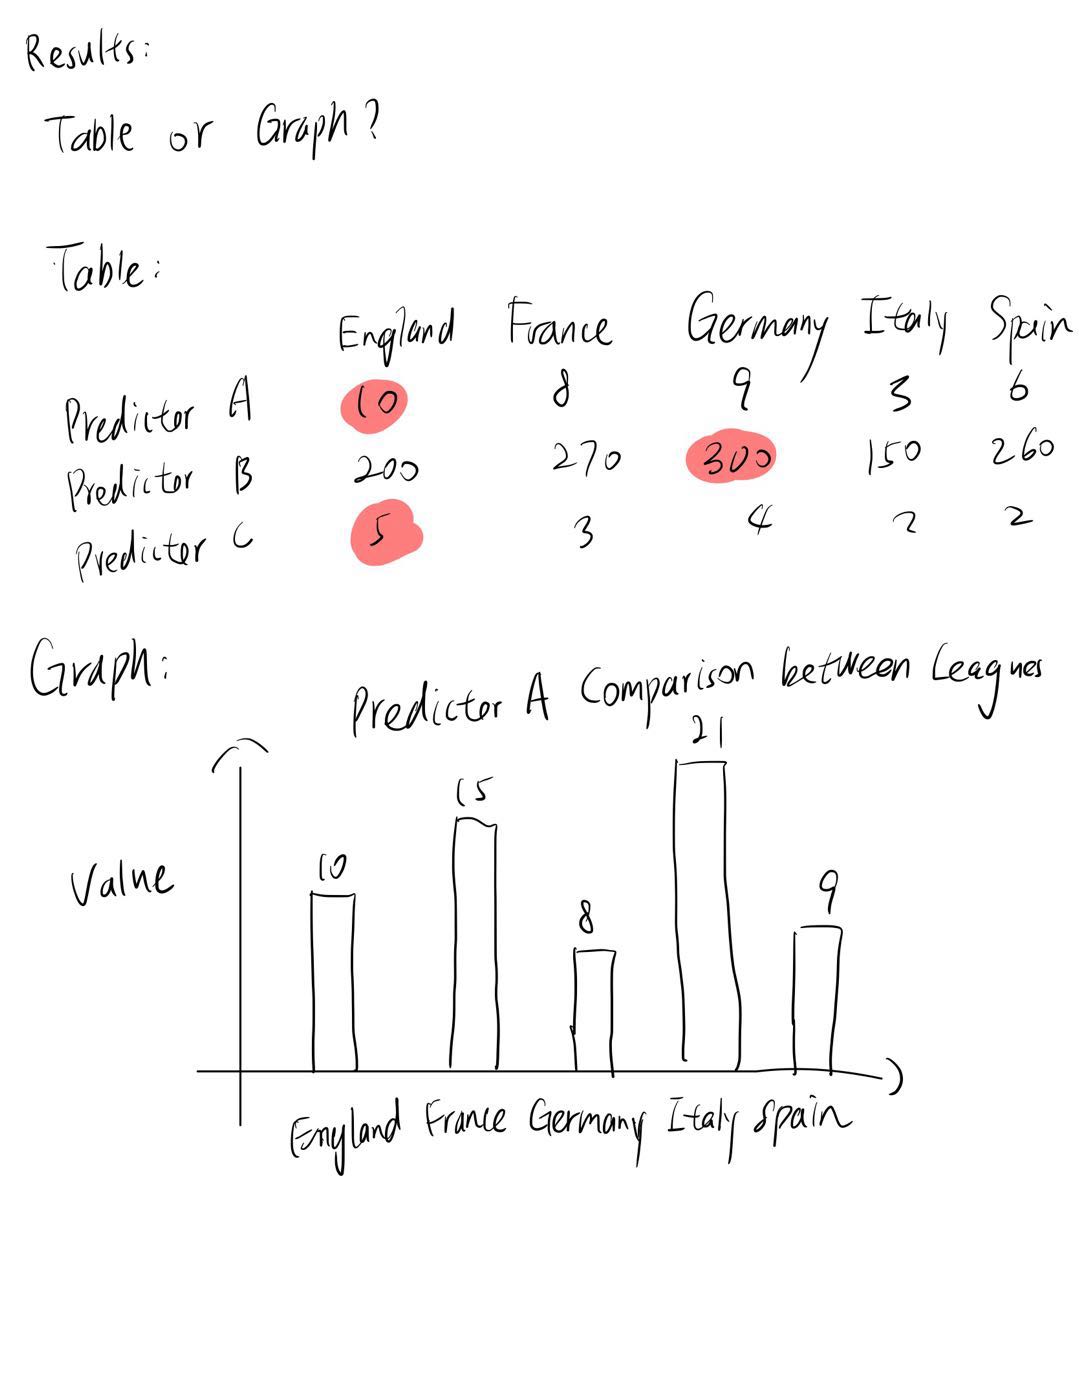 Results:
Table or Graph?
Table:
England France Germany Italy Spain
Predictor A 10 8 9 3 6
Predictor B 200 270 300 150 260
Predictor C 5 3 4 2 2
Graph:
Predictor A Comparison between Leagues
21
15
10
9
8
Value
England France Germany Italy Spain